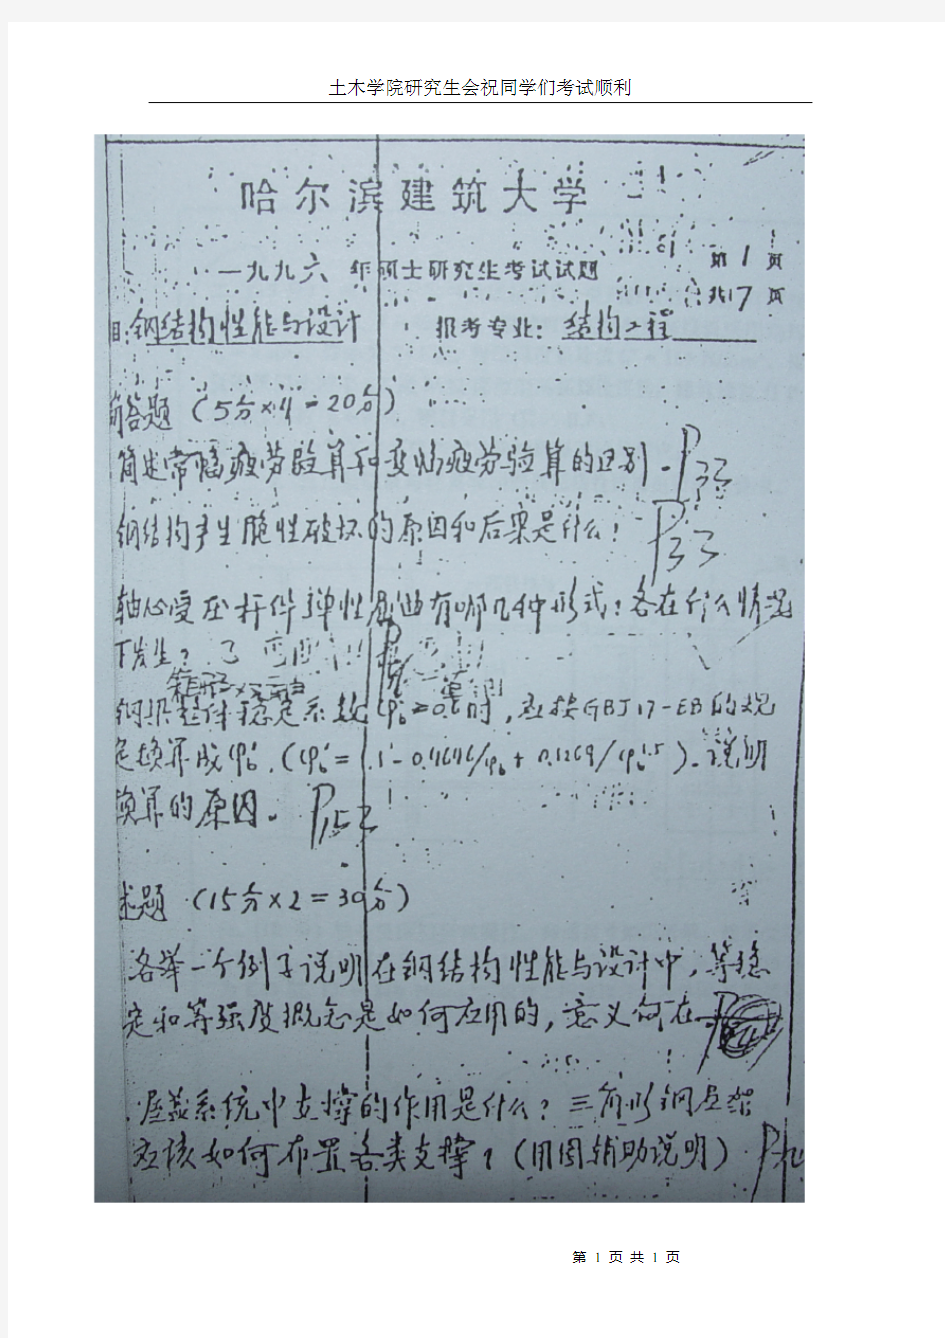 土木学院研究生会祝同学们考试顺利
哈尔滨建筑大学
一九九六 年硕士研究生考试试题 第1页
共17页
目:钢结构性能与设计 报考专业: 结构工程
简答题 (5分×4=20分)
简述常幅疲劳验算和变幅疲劳验算的区别. P33
钢结构产生脆性破坏的原因和后果是什么? P33
轴心受压杆件弹性屈曲有哪几种形式?各在什么情况
下发生?
钢梁整体稳定系数 时,应按GBJ17-
的规
定换算成φb'.(φb'=1.1-0.4646/φb+0.1269/φb^1.5).说明
换算的原因. P152
述题 (15分×2=30分)
各举一个例子说明在钢结构性能与设计中,等稳
定和等强度概念是如何应用的,意义何在
屋盖系统中支撑的作用是什么?三角形钢屋架
应该如何布置各类支撑?(用图辅助说明)
第 1 页 共 1 页